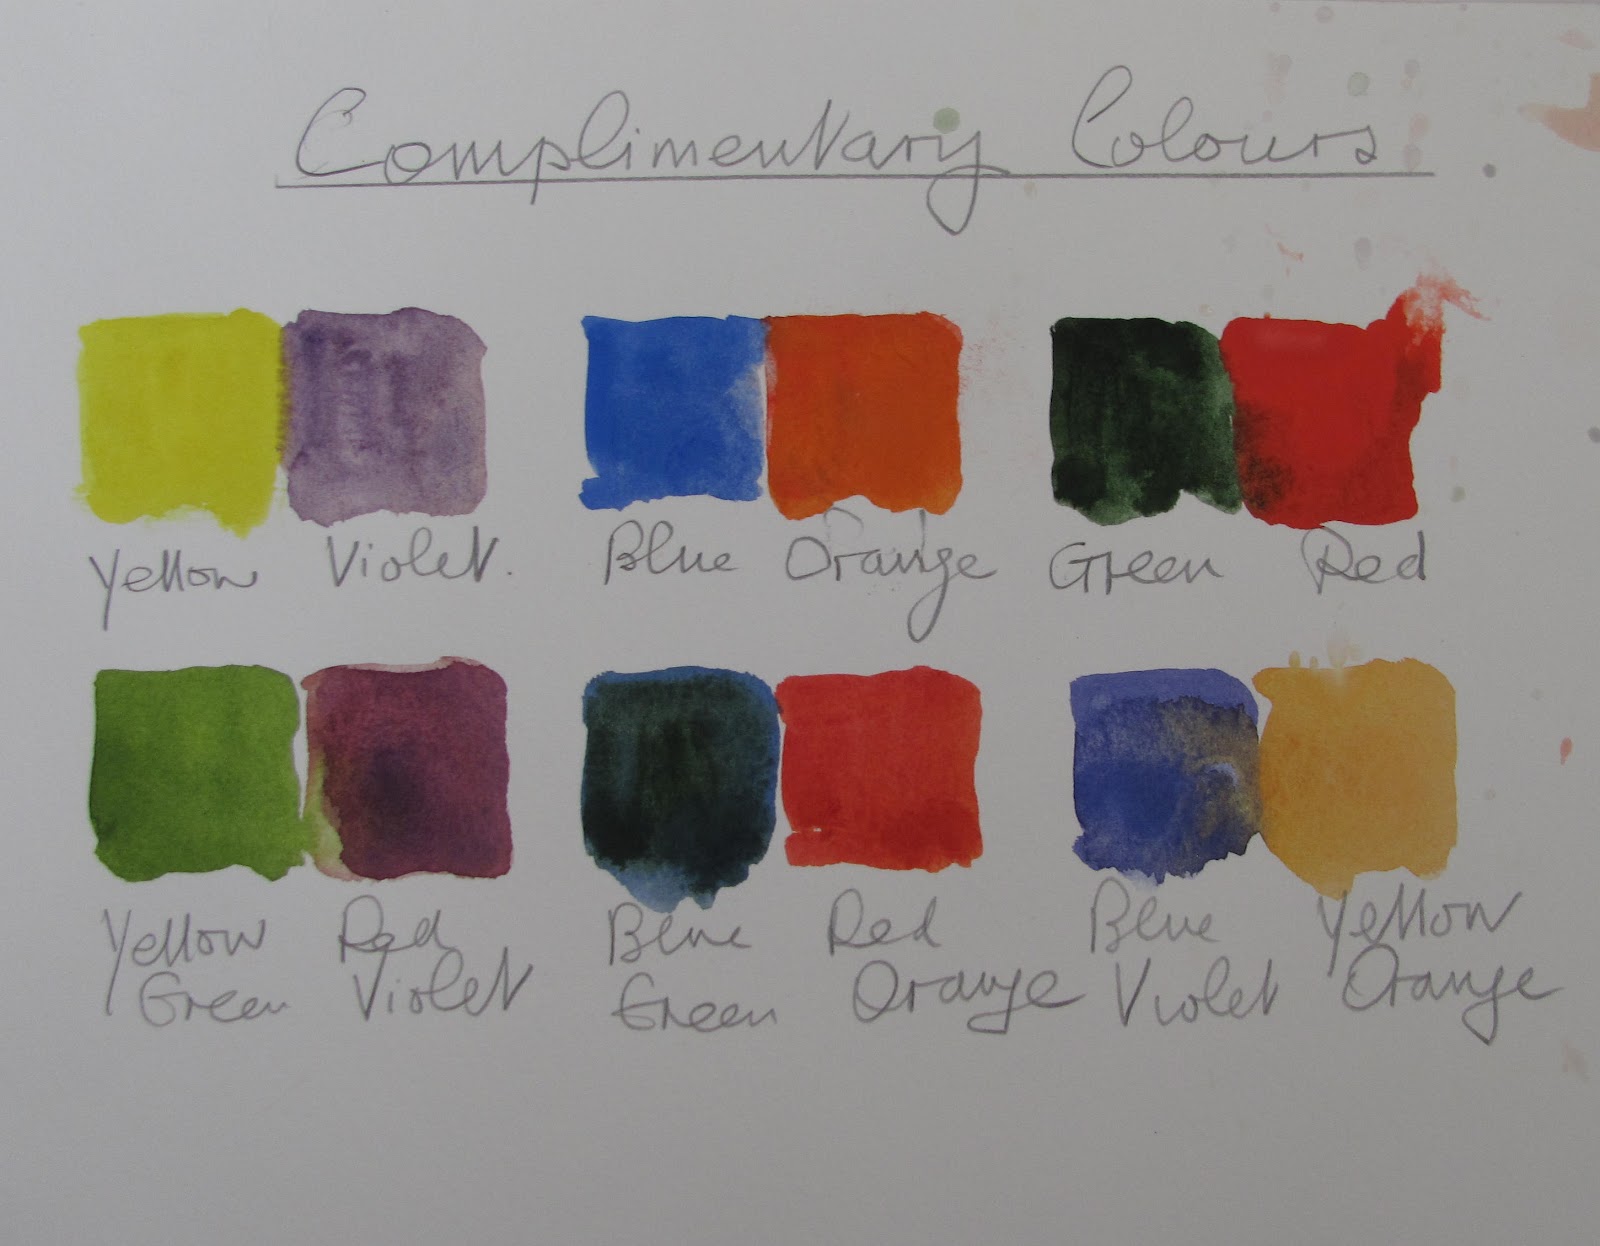 Complimentary Colours
Yellow Violet. Blue Orange Green Red
Yellow Red Blue Red Blue Yellow
Green Violet Green Orange Violet Orange